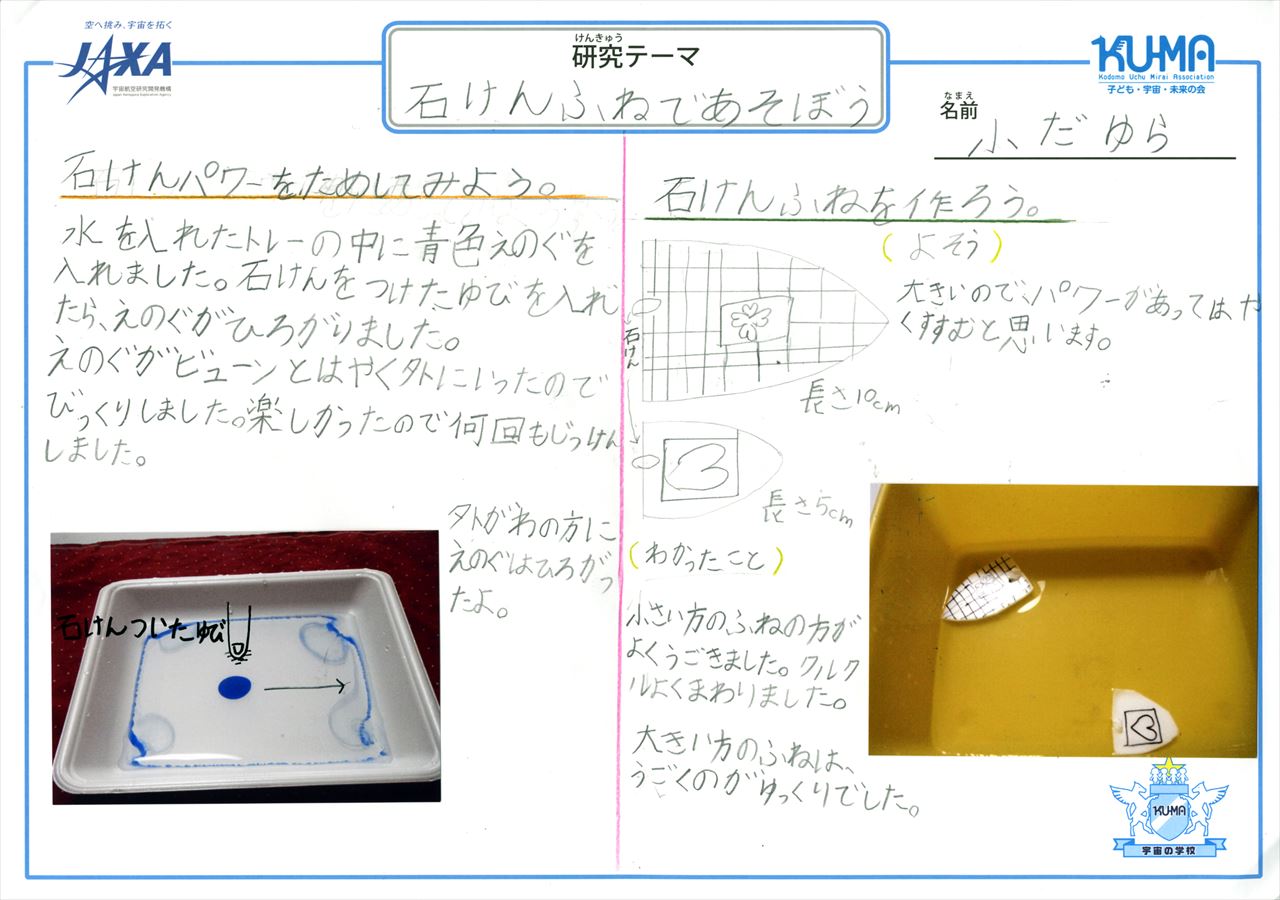 空へ挑み、宇宙を拓く
JAXA
宇宙航空研究開発機構
Japan Aerospace Exploration Agency
けんきゅう
研究テーマ
石けんふねであそぼう
KU-MA
Kodomo Uchu Mirai Association
子ども・宇宙・未来の会
なまえ
名前
小だゆら
石けんパワーをためしてみよう。
水を入れたトレーの中に青色えのぐを
入れました。石けんをつけたゆびを入れ
たら、えのぐがひろがりました。
えのぐがビューンとはやく外にいったので
びっくりしました。楽しかったので何回もじっけん
しました。
外がわの方に
えのぐはひろがっ
たよ。
石けんついたゆび
石けんふねを作ろう。
(よそう)
大きいので、パワーがあってはや
くすすむと思います。
石けん
長さ10cm
長さ5cm
(わかったこと)
小さい方のふねの方が
よくうごきました。クルク
ルよくまわりました。
大きい方のふねは、
うごくのがゆっくりでした。
KU-MA
宇宙の学校